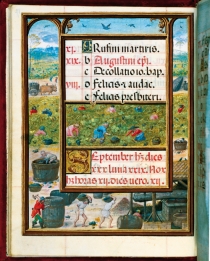 xi. A Rufini martiris.
xix. b Augustini epi.
c Decollatio io. bap.
viii. d Felicis & audac.
e Felicis presbiteri.
September hz dies
xxx luna xxix. Nox
hz horas xii. dies vero. xii.